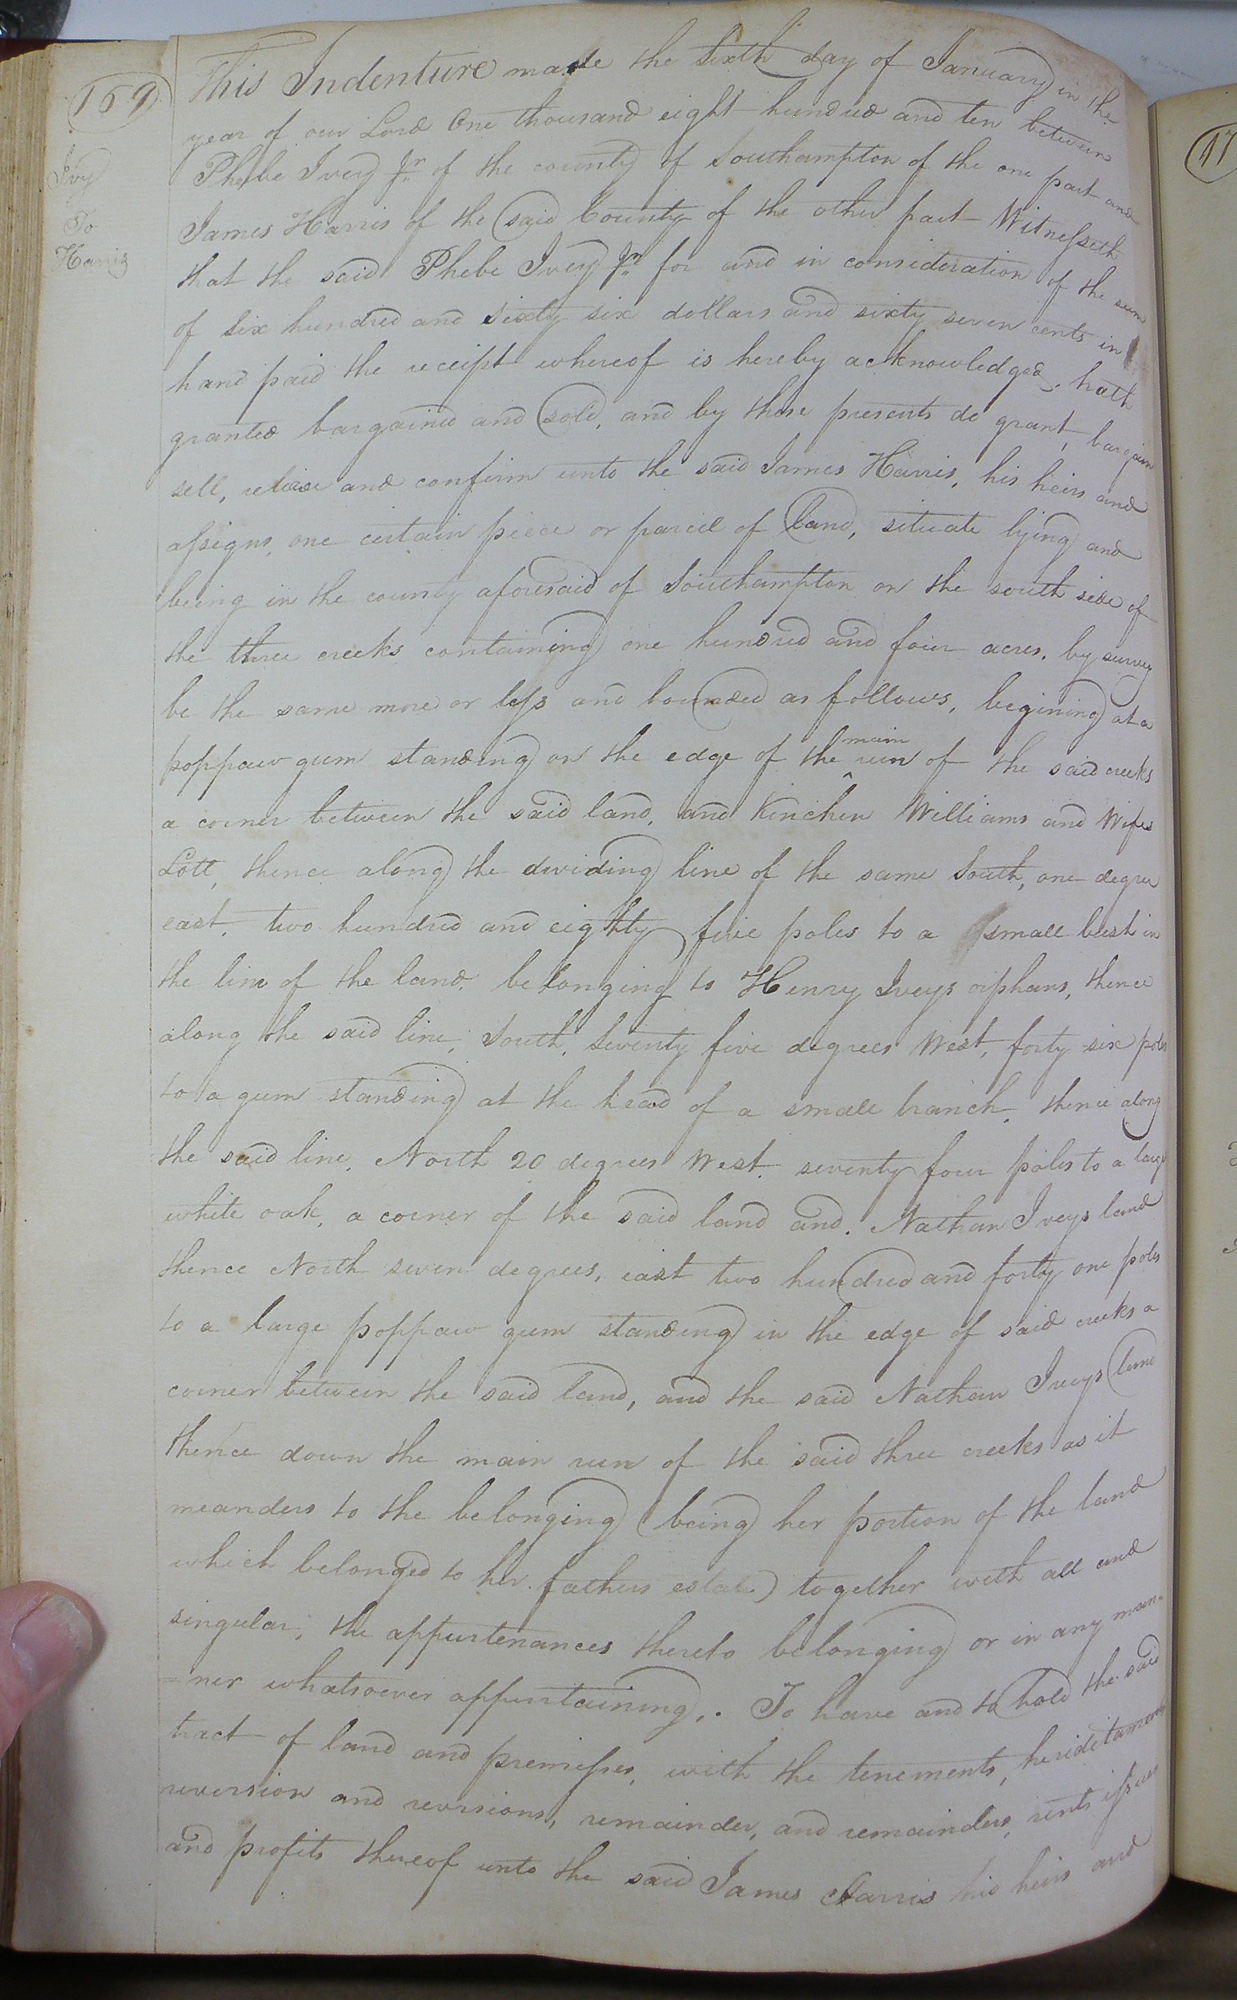 169
Ivy
To
Harris
This Indenture made the sixth day of January in the
year of our Lord One thousand eight hundred and ten between
Phebe Ivey Jr. of the county of Southampton of the one part and
James Harris of the said County of the other part Witnesseth
that the said Phebe Ivey Jr. for and in consideration of the sum
of six hundred and sixty six dollars and sixty seven cents in
hand paid the receipt whereof is hereby acknowledged, hath
granted bargained and sold, and by these presents do grant, bargain
sell, release and confirm unto the said James Harris, his heirs and
assigns, one certain piece or parcel of land, situate lying and
being in the county aforesaid of Southampton on the south side of
the three creeks containing one hundred and four acres, by survey
be the same more or less and bounded as follows, begining at a
poppaw gum standing on the edge of the main run of the said creeks
a corner between the said land, and Kinchin Williams and Wifes
Lott, thence along the dividing line of the same South, one degree
east, two hundred and eighty five poles to a small beest in
the line of the land, belonging to Henry Iveys orphans, thence
along the said line, South, seventy five degrees West, forty six poles
to a gum standing at the head of a small branch, thence along
the said line, North 20 degrees West, seventy four poles to a large
white oak, a corner of the said land and. Nathan Iveys land
thence North seven degrees, east two hundred and forty one poles
to a large poppaw gum standing in the edge of said creeks a
corner between the said land, and the said Nathan Iveys land
thence down the main run of the said three creeks as it
meanders to the belonging (being her portion of the land
which belonged to her fathers estate) together with all and
singular, the appurtenances thereto belonging or in any man-
=ner whatsoever appurtaining,. To have and to hold the said
tract of land and premisses, with the tenements, heriditaments
reversion and reversions, remainder, and remainders, rents issues
and profits thereof unto the said James Harris his heirs and
17